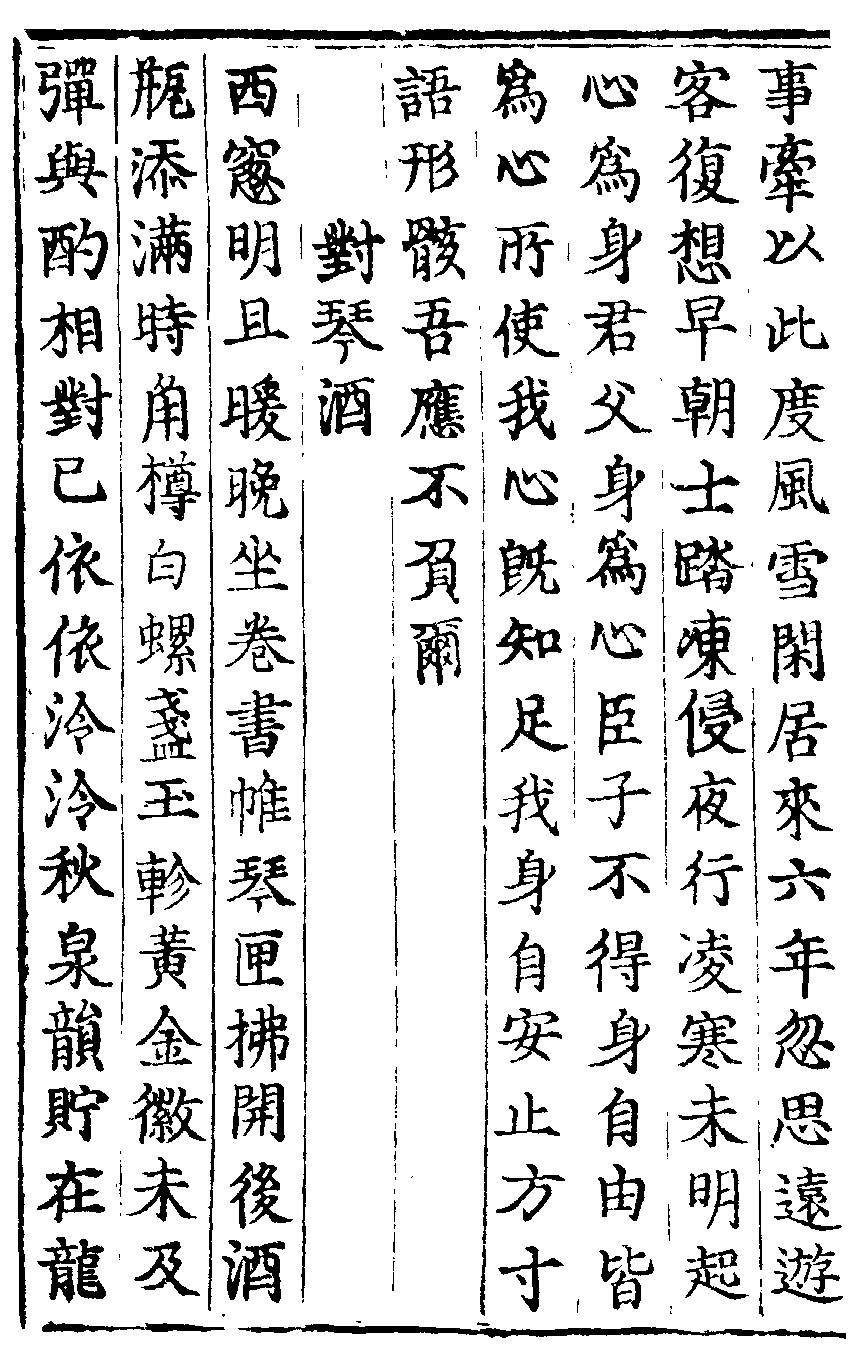 事牽以此度風雪閑居來六年忽思遠遊
客復想早朝士踏凍侵夜行凌寒未明起
心爲身君父身爲心臣子不得身自由皆
爲心所使我心旣知足我身自安止方寸
語形骸吾應不負爾
對琴酒
西窻明且暖晚坐卷書帷琴匣拂開後酒
甁添滿時角樽白螺盞玉軫黃金徽未及
彈與酌相對已依依泠泠秋泉韻貯在龍